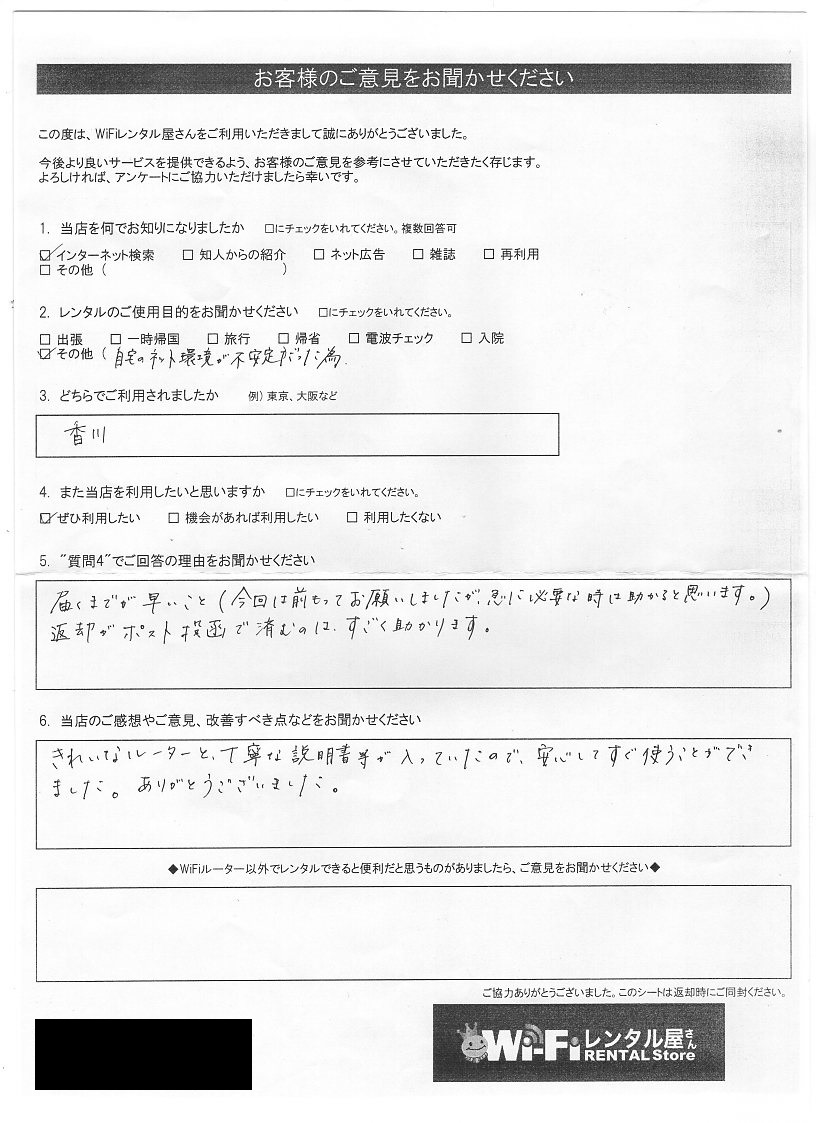 お客様のご意見をお聞かせください
この度は、WiFiレンタル屋さんをご利用いただきまして誠にありがとうございました。
今後より良いサービスを提供できるよう、お客様のご意見を参考にさせていただきたく存じます。
よろしければ、アンケートにご協力いただけましたら幸いです。
1. 当店を何でお知りになりましたか □にチェックをいれてください。複数回答可
☑インターネット検索 □ 知人からの紹介 □ ネット広告 □ 雑誌 □ 再利用
□ その他 ( )
2. レンタルのご使用目的をお聞かせください □にチェックをいれてください。
□ 出張 □ 一時帰国 □ 旅行 □ 帰省 □ 電波チェック □ 入院
☑その他 ( 自宅のネット環境が不安定だった為.
3. どちらでご利用されましたか 例) 東京、大阪など
香川
4. また当店を利用したいと思いますか □にチェックをいれてください。
☑ぜひ利用したい □ 機会があれば利用したい □ 利用したくない
5. "質問4"でご回答の理由をお聞かせください
届くまでが早いこと(今回は前もってお願いしましたが、急に必要な時は助かると思います。)
返却がポスト投函で済むのは、すごく助かります。
6. 当店のご感想やご意見、改善すべき点などをお聞かせください
きれいなルーターと、丁寧な説明書等が入っていたので、安心してすぐ使うことができ
ました。ありがとうございました。
◆WiFiルーター以外でレンタルできると便利だと思うものがありましたら、ご意見をお聞かせください◆
ご協力ありがとうございました。このシートは返却時にご同封ください。
Wi-Fiレンタル屋さん
RENTAL Store